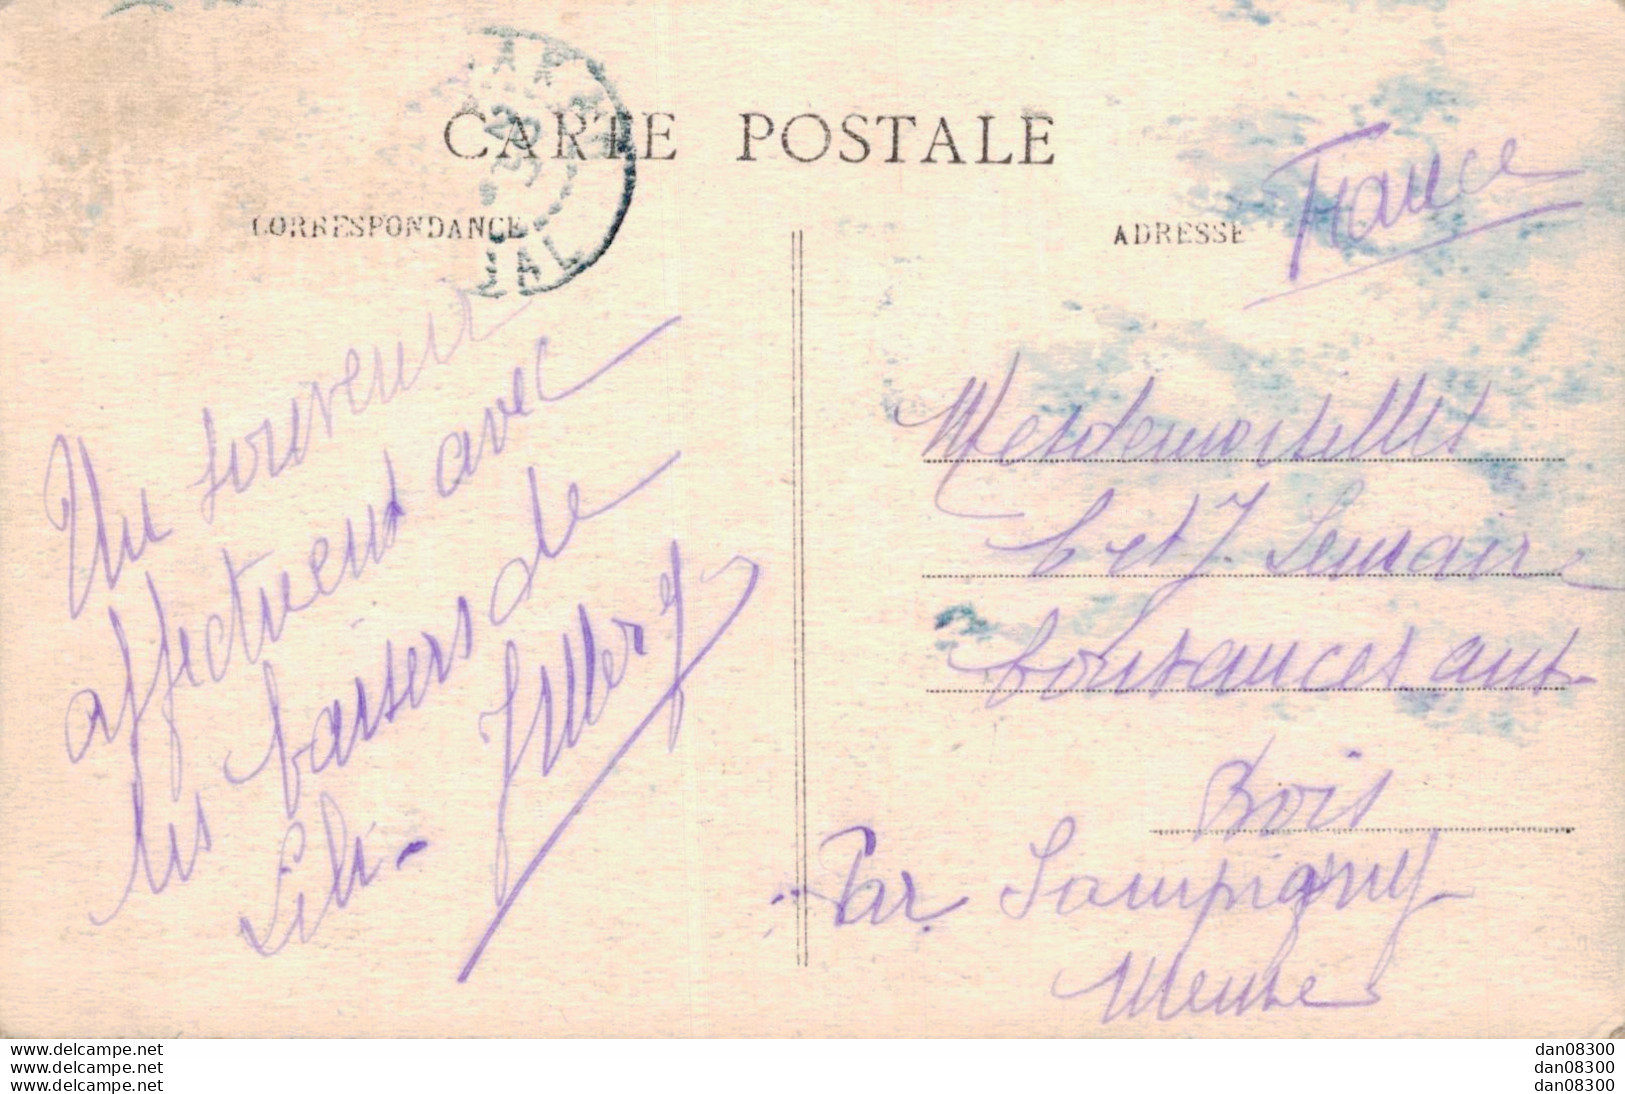 CARTE POSTALE
CORRESPONDANCE
ADRESSE
France
Un souvenir
affectueux avec
les baisers de
Lili
Mesdemoiselles
C et J. Lemaire
Coutances aux
Bois
Par Sampigny
Meuse
www.delcampe.net
www.delcampe.net
www.delcampe.net
dan08300
dan08300
dan08300